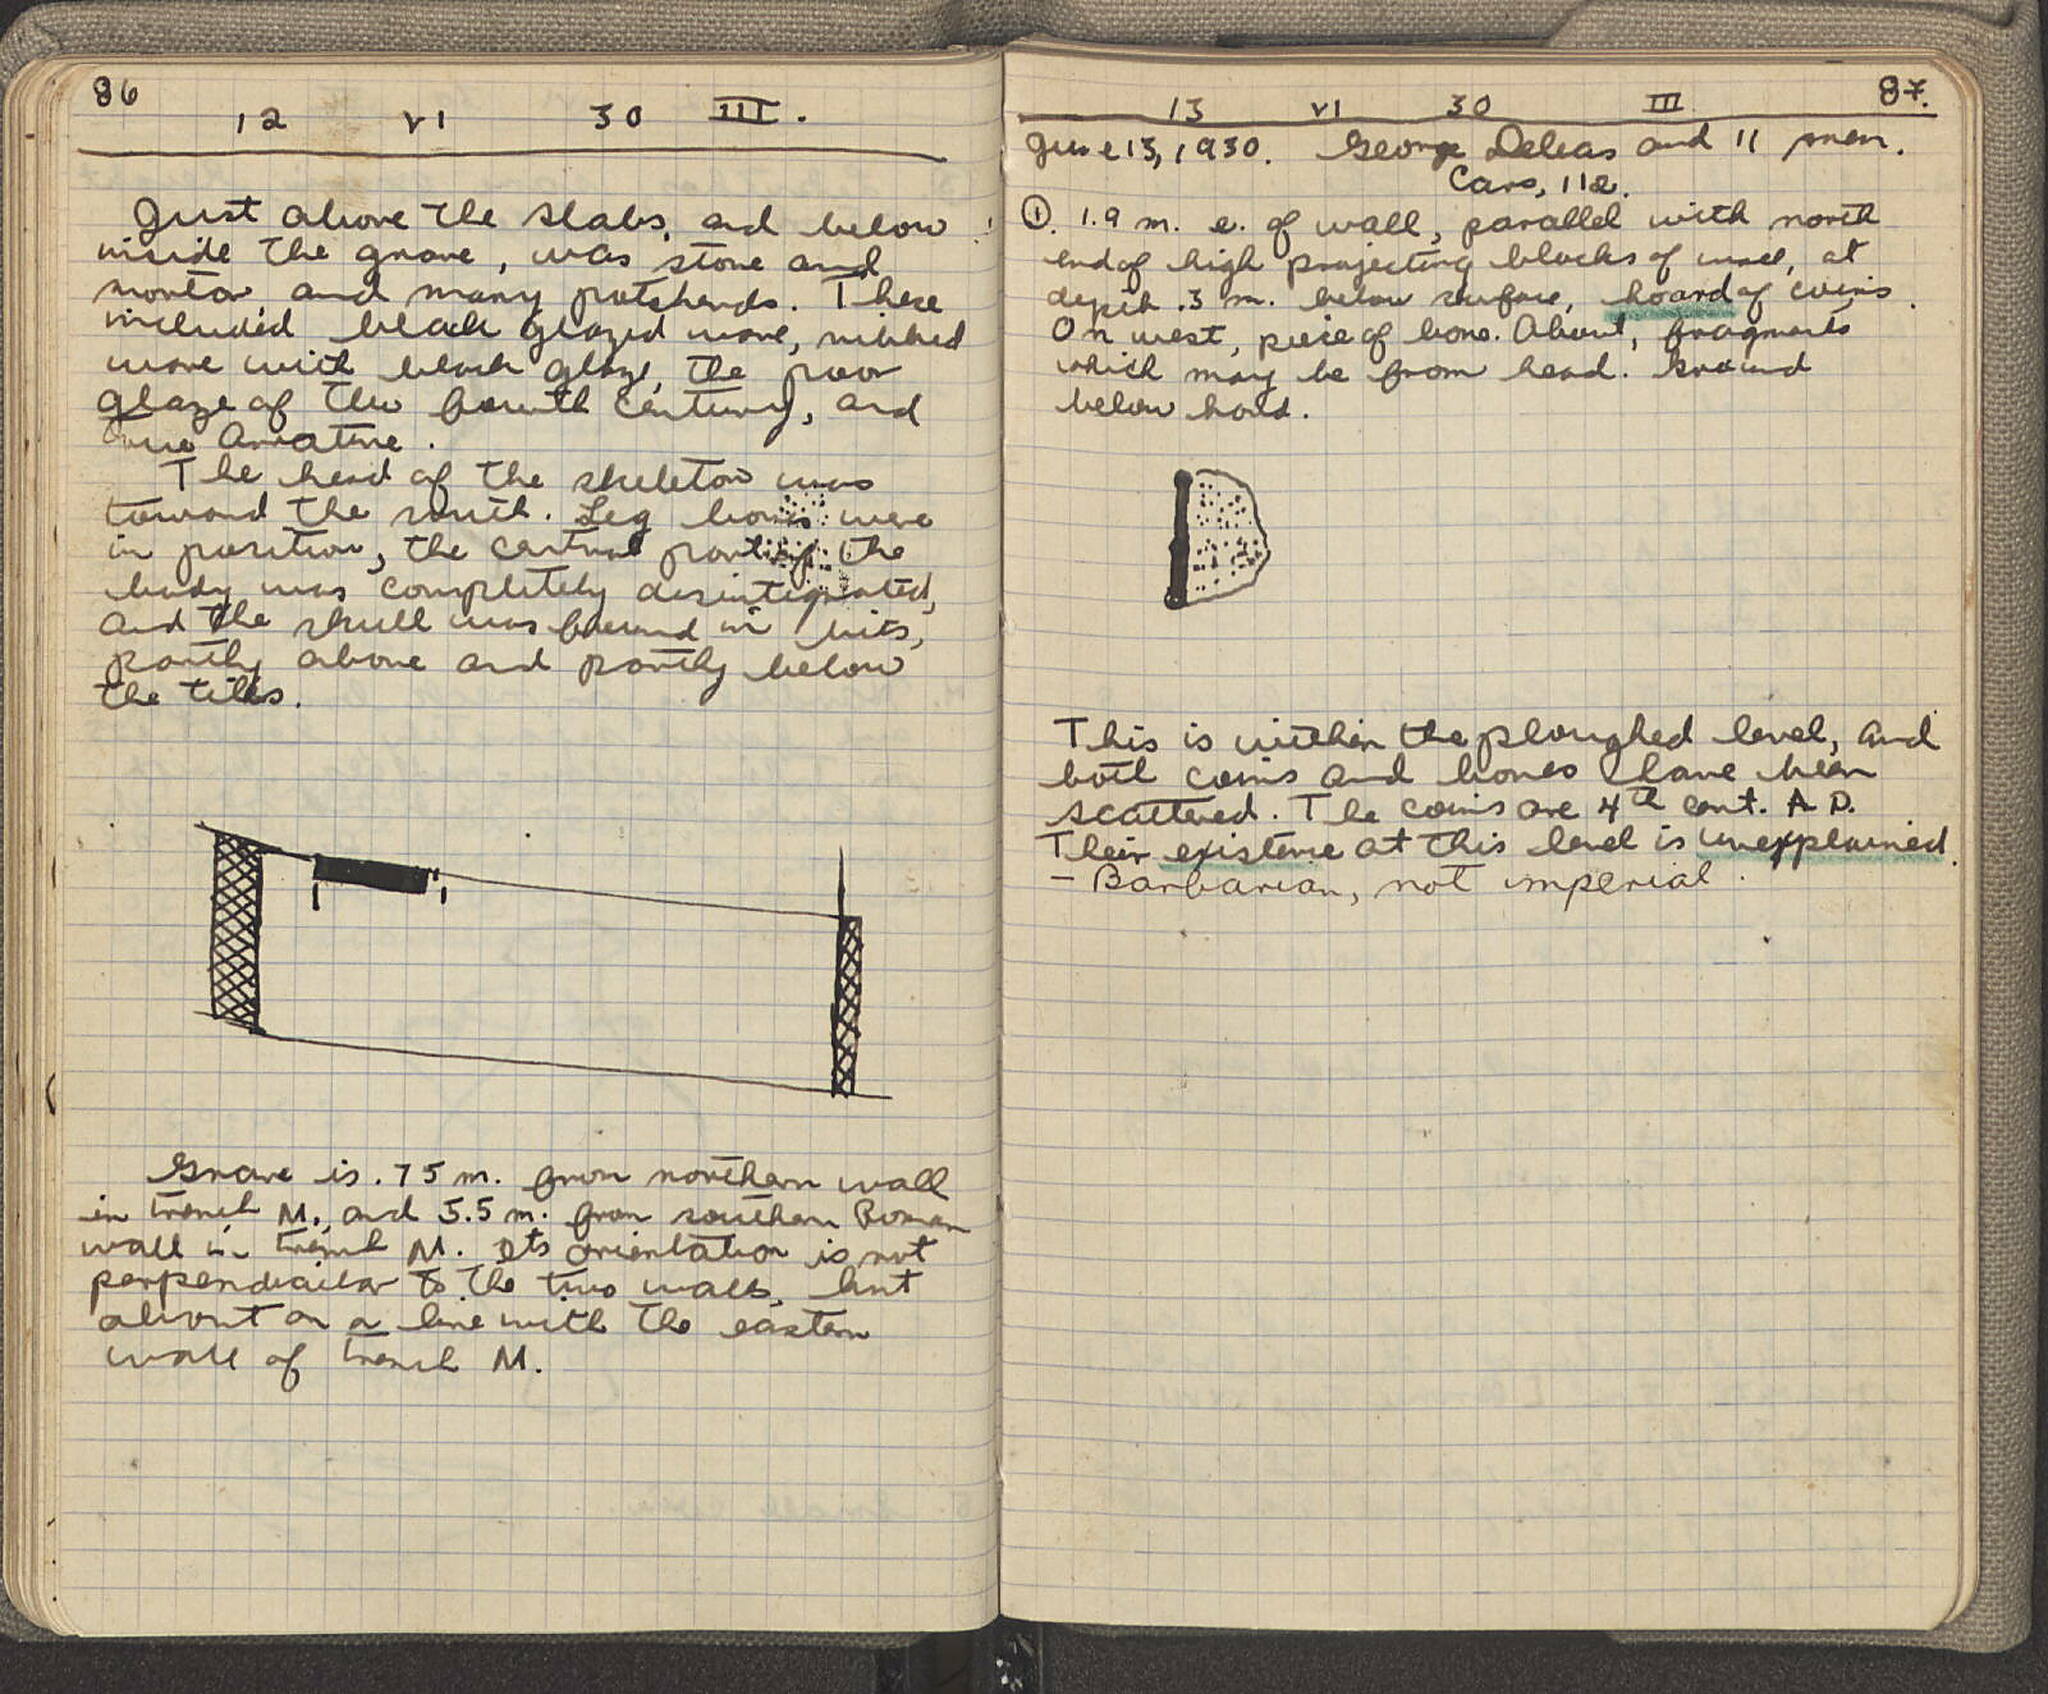 86
12 VI 30 III.
Just above the slabs, and below
inside the grave, was stone and
mortar and many potsherds. These
included black glazed ware, ribbed
ware with black glaze, the poor
glaze of the fourth century, and
true Arretine.
The head of the skeleton was
toward the south. Leg bones were
in position, the central part of the
body was completely disintegrated,
and the skull was found in bits,
partly above and partly below
the tiles.
Grave is .75 m. from northern wall
in trench M., and 5.5 m. from southern Roman
wall in trench M. Its orientation is not
perpendicular to the two walls, but
about on a line with the eastern
wall of trench M.
87.
13 VI 30 III
June 13, 1930. George Deleas and 11 men.
Cars, 112.
①. 1.9 m. e. of wall, parallel with north
end of high projecting blocks of wall, at
depth .3 m. below surface, hoard of coins.
On west, piece of bone. About, fragments
which may be from head. Ground
below hard.
This is within the ploughed level, and
both coins and bones have been
scattered. The coins are 4th cent. A D.
Their existence at this level is unexplained.
- Barbarian, not imperial.